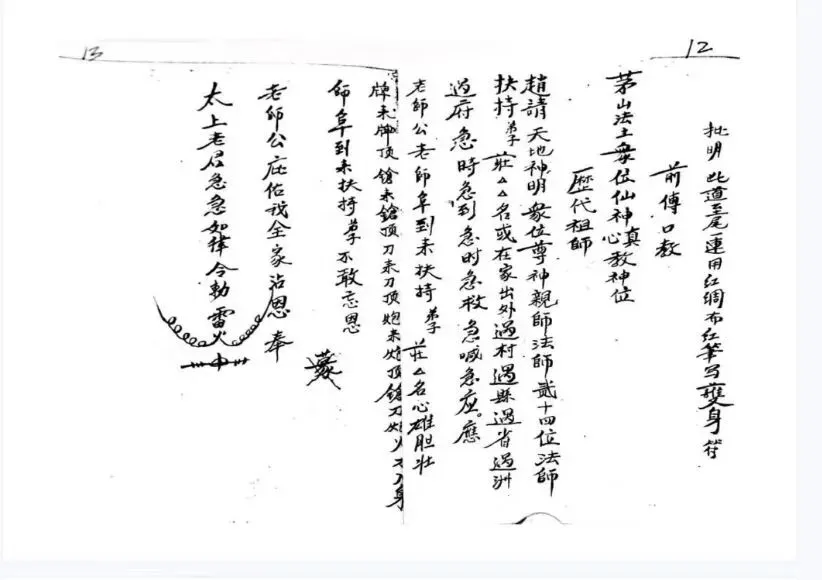 12
批明 此道至尾一連用紅綢布紅筆写雙身符
前傳口教
茅山法主衆位仙神心真教神位
歷代祖師
趙請天地神明衆位尊神親師法師貳十四位法師
扶持弟子莊△△名或在家出外過村過縣過省過洲
過府急時急到急时急救急喊急应。應
老師公老師阜到來扶持弟子莊△△名心雄胆壮
牌來牌顶鎗來鎗頂刀来刀顶炮来炮頂鎗刀炮火不入身
師阜到来扶持弟子不敢忘恩
老師公庇佑我全家沾恩奉
太上老君急急如律令勅雷火
13